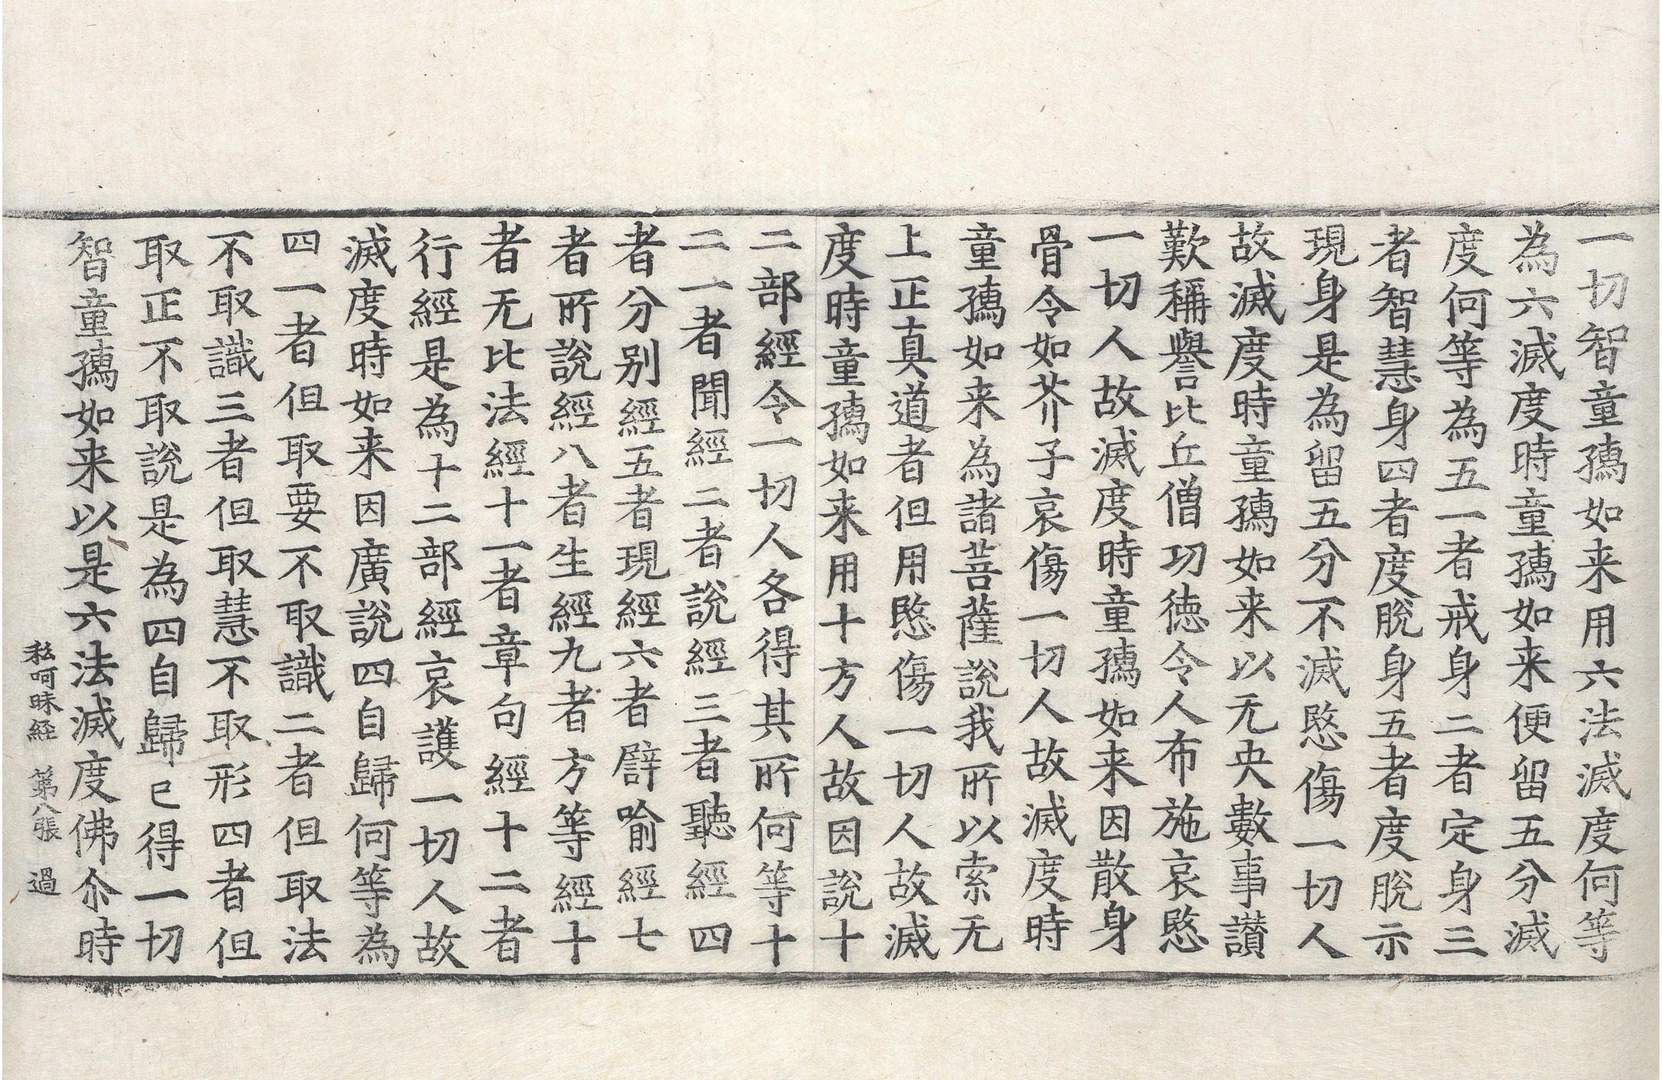 一切智童孺如来用六法滅度何等
為六滅度時童孺如来便留五分滅
度何等為五一者戒身二者定身三
者智慧身四者度脫身五者度脫示
現身是為留五分不滅愍傷一切人
故滅度時童孺如来以无央數事讃
歎稱譽比丘僧功徳令人布施哀愍
一切人故滅度時童孺如来因散身
骨令如芥子哀傷一切人故滅度時
童孺如来為諸菩薩說我所以索无
上正真道者但用愍傷一切人故滅
度時童孺如来用十方人故因說十
二部經令一切人各得其所何等十
二一者聞經二者說經三者聽經四
者分别經五者現經六者譬喻經七
者所說經八者生經九者方等經十
者无比法經十一者章句經十二者
行經是為十二部經哀護一切人故
滅度時如来因廣說四自歸何等為
四一者但取要不取識二者但取法
不取識三者但取慧不取形四者但
取正不取說是為四自歸已得一切
智童孺如来以是六法滅度佛尒時
私呵昧経 第八張 過